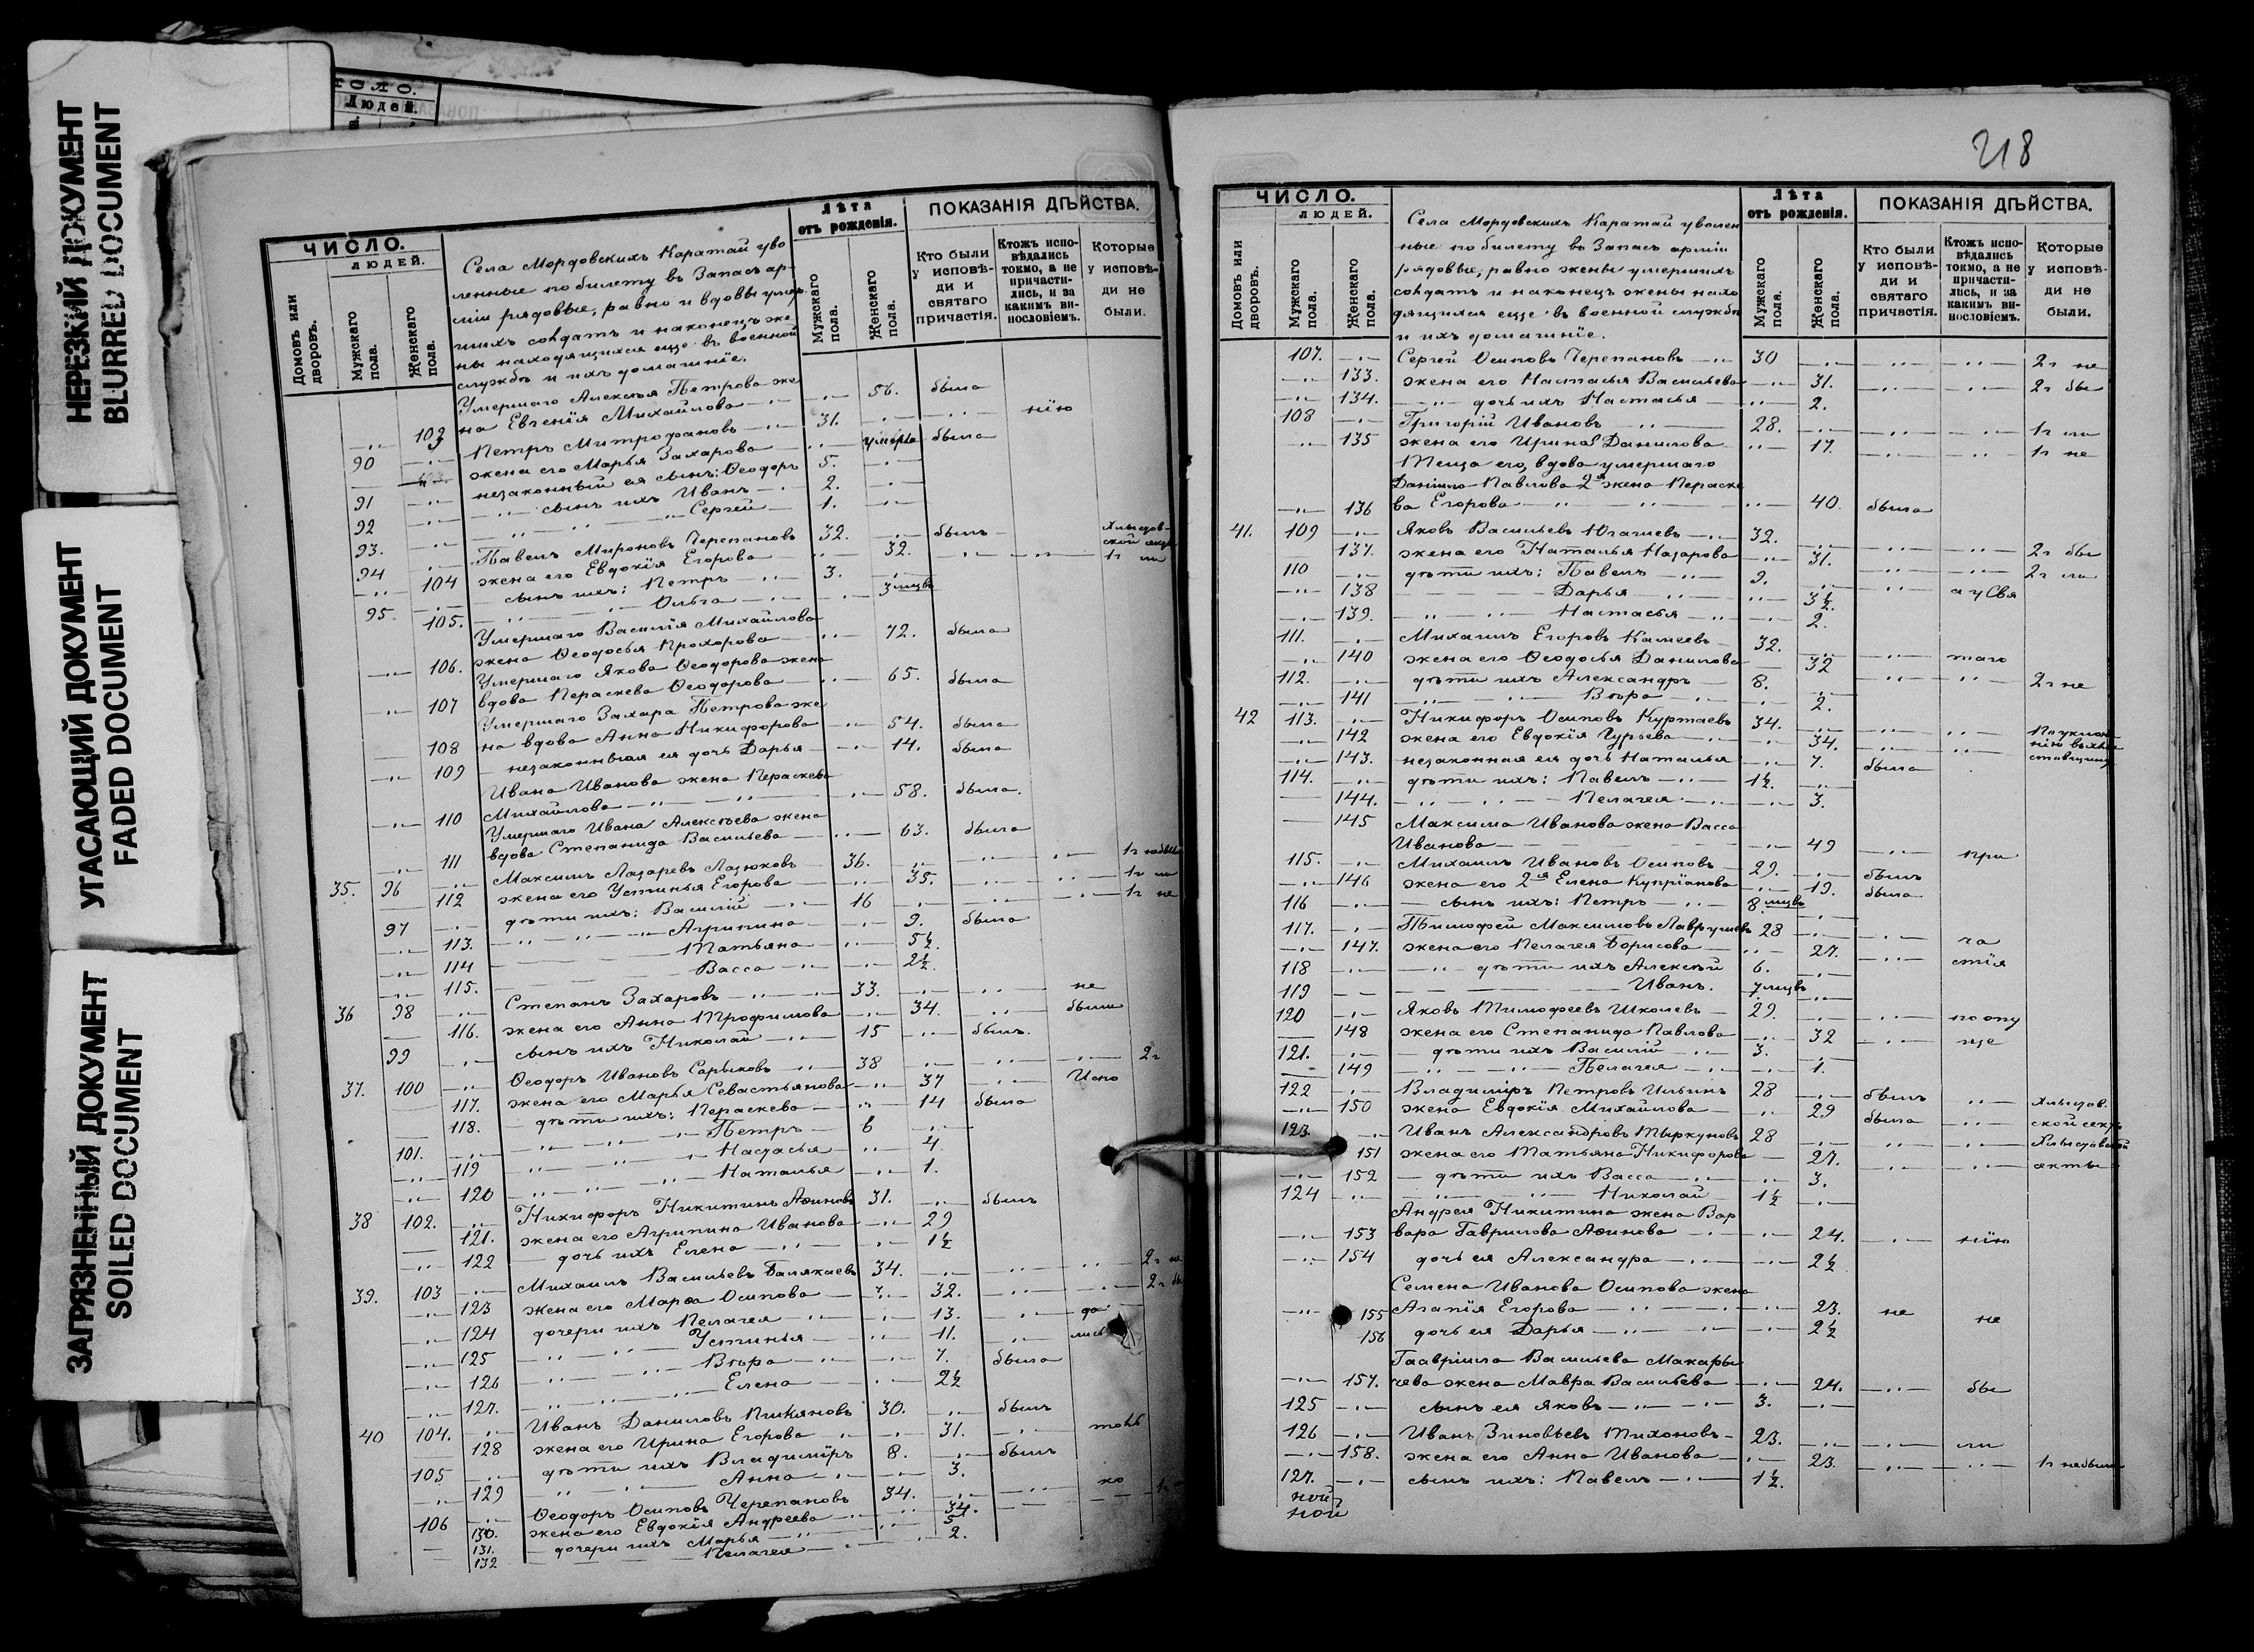 НЕРЕЗКИЙ ДОКУМЕНТ
BLURRED DOCUMENT
УГАСАЮЩИЙ ДОКУМЕНТ
FADED DOCUMENT
ЗАГРЯЗНЕННЫЙ ДОКУМЕНТ
SOILED DOCUMENT
Людей.
ЧИСЛО.
людей.
Домовъ или дворовъ.
Мужскаго пола.
Женскаго пола.
Села Мордовскихъ Каратай уво
ленные по билету въ Запасъ ар-
міи рядовые, равно и вдовы умер
шихъ солдатъ и наконецъ же
ны находящихся еще въ военной
службѣ и ихъ домашніе.
Лѣта отъ рожденія.
Мужскаго пола.
Женскаго пола.
ПОКАЗАНІЯ ДѢЙСТВА.
Кто были у исповѣди и святаго причастія.
Ктожъ исповѣдались токмо, а не причастились, и за какимъ винословіемъ.
Которые у исповѣди не были.
Умершаго Алексѣя Петрова же
103 на Евгенія Михайлова 56. была
90 Петръ Митрофановъ 31. нію
жена его Марья Захарова умерла была
91 незаконный ея сынъ: Ѳеодоръ 5.
92 сынъ ихъ Иванъ 2.
93. Сергей 1.
94 Павелъ Мироновъ Черепановъ 32. былъ
104 жена его Евдокія Егорова 32.
95 сынъ ихъ: Петръ 3.
105. Ольга 3 мцвъ
Умершаго Василія Михайлова
106. жена Ѳеодосья Прохорова 72. была
Умершаго Якова Ѳеодорова жена
107 вдова Параскева Ѳеодорова 65. была
Умершаго Захара Петрова же
108 на вдова Анна Никифорова 54. была
109 незаконная ея дочь Дарья 14. была
Ивана Иванова жена Параскева
110 Михайлова 58. была.
Умершаго Ивана Алексѣева жена
111 вдова Степанида Васильева 63. была
35. 96 Максимъ Лазаревъ Лазюковъ 36.
112 жена его Устинья Егорова 35.
97 дѣти ихъ: Василій 16 1г не
113. Агрипина 9. была
114 Татьяна 5½.
115. Васса 2½.
36 98 Степанъ Захаровъ 33. не
116. жена его Анна Трофимова 34. были
99 сынъ ихъ Николай 15 былъ.
37. 100 Ѳеодоръ Ивановъ Сарыковъ 38 2г
117. жена его Марья Севастьянова 37 Испо
118. дѣти ихъ: Параскева 14 была
101. Петръ 6
119 Настасья 4.
120 Наталья 1.
38 102. Никифоръ Никитинъ Аѳиновъ 31. былъ
121. жена его Агрипина Иванова 29
122 дочь ихъ Елена 1½
39. 103 Михаилъ Васильевъ Балякаевъ 34. 2г не
123 жена его Марѳа Осипова 32. 2г бы
124 дочери ихъ Пелагея 13. да
125 Устинья 11. лись
126 Вѣра 7. была
127. Елена 2½
40 104. Иванъ Даниловъ Пикяновъ 30. былъ
128 жена его Ирина Егорова 31. токъ
105 дѣти ихъ Владиміръ 8. былъ
129 Анна 3.
106 Ѳеодоръ Осиповъ Черепановъ 34. но
130. жена его Евдокія Андреева 34.
131. дочери ихъ Марья 5
132 Пелагея 2.
218
ЧИСЛО.
людей.
Домовъ или дворовъ.
Мужскаго пола.
Женскаго пола.
Села Мордовскихъ Каратай уволен
ные по билету въ Запасъ арміи
рядовые, равно жены умершихъ
солдатъ и наконецъ жены нахо
дящихся еще въ военной службѣ
и ихъ домашніе.
Лѣта отъ рожденія.
Мужскаго пола.
Женскаго пола.
ПОКАЗАНІЯ ДѢЙСТВА.
Кто были у исповѣди и святаго причастія.
Ктожъ исповѣдались токмо, а не причастились, и за какимъ винословіемъ.
Которые у исповѣди не были.
107. Сергей Осиповъ Черепановъ 30 2г не
133. жена его Настасья Васильева 31. 2г бы
134. дочь ихъ Настасья 2.
108 Григорій Ивановъ 28. 1г ли
135 жена его Ирина Данилова 17. 1г не
Теща его, вдова умершаго
Данило Павлова 2я жена Параске
136 ва Егорова 40. была
41. 109 Яковъ Васильевъ Югашевъ 32.
137. жена его Наталья Назарова 31. 2г бы
110 дѣти ихъ: Павелъ 9. 2г ли
138 Дарья 3½. а у Свя
139. Настасья 2.
111. Михаилъ Егоровъ Камеевъ 32.
140 жена его Ѳеодосья Данилова 32 таго
112. дѣти ихъ Александръ 8. 2г не
141 Вѣра 2.
42 113. Никифоръ Осиповъ Куртаевъ 34.
142 жена его Евдокія Гурьева 34.
143. незаконная ея дочь Наталья 7. была
114. дѣти ихъ: Павелъ 1½.
144. Пелагея 3.
145 Максима Иванова жена Васса
Иванова 49 при
115. Михаилъ Ивановъ Осиповъ 29. былъ
146 жена его 2я Елена Купріанова 19. была
116 сынъ ихъ: Петръ 8 мцвъ
117. Тимоѳей Максимовъ Лаврушевъ 28
147. жена его Пелагея Борисова 27. ча
118 дѣти ихъ Алексѣй 6. стія
119 Иванъ. 7 мцвъ
120 Яковъ Тимофеевъ Школевъ 29. по опу
148 жена его Степанида Павлова 32 ще
121. дѣти ихъ Василій 3.
149 Пелагея 1.
122 Владиміръ Петровъ Ильинъ 28 былъ
150 жена Евдокія Михайлова 29 была
123. Иванъ Александровъ Тыркуновъ 28
151 жена его Татьяна Никифорова 27.
152 дѣти ихъ Васса 3.
124 Николай 1½
Андрея Никитина жена Вар
153 вара Гаврилова Аѳинова 24. нію
154 дочь ея Александра 2½
Семена Иванова Осипова жена
155 Агапія Егорова 23. не не
156 дочь ея Дарья 2½
Гавріила Васильева Макары
157. чева жена Мавра Васильева 24. бы
125 сынъ ея Яковъ 3.
126 Иванъ Зиновьевъ Тихоновъ 23. ли
158. жена его Анна Иванова 23. 1г небыли
127. сынъ ихъ: Павелъ 1½.
ной
ной